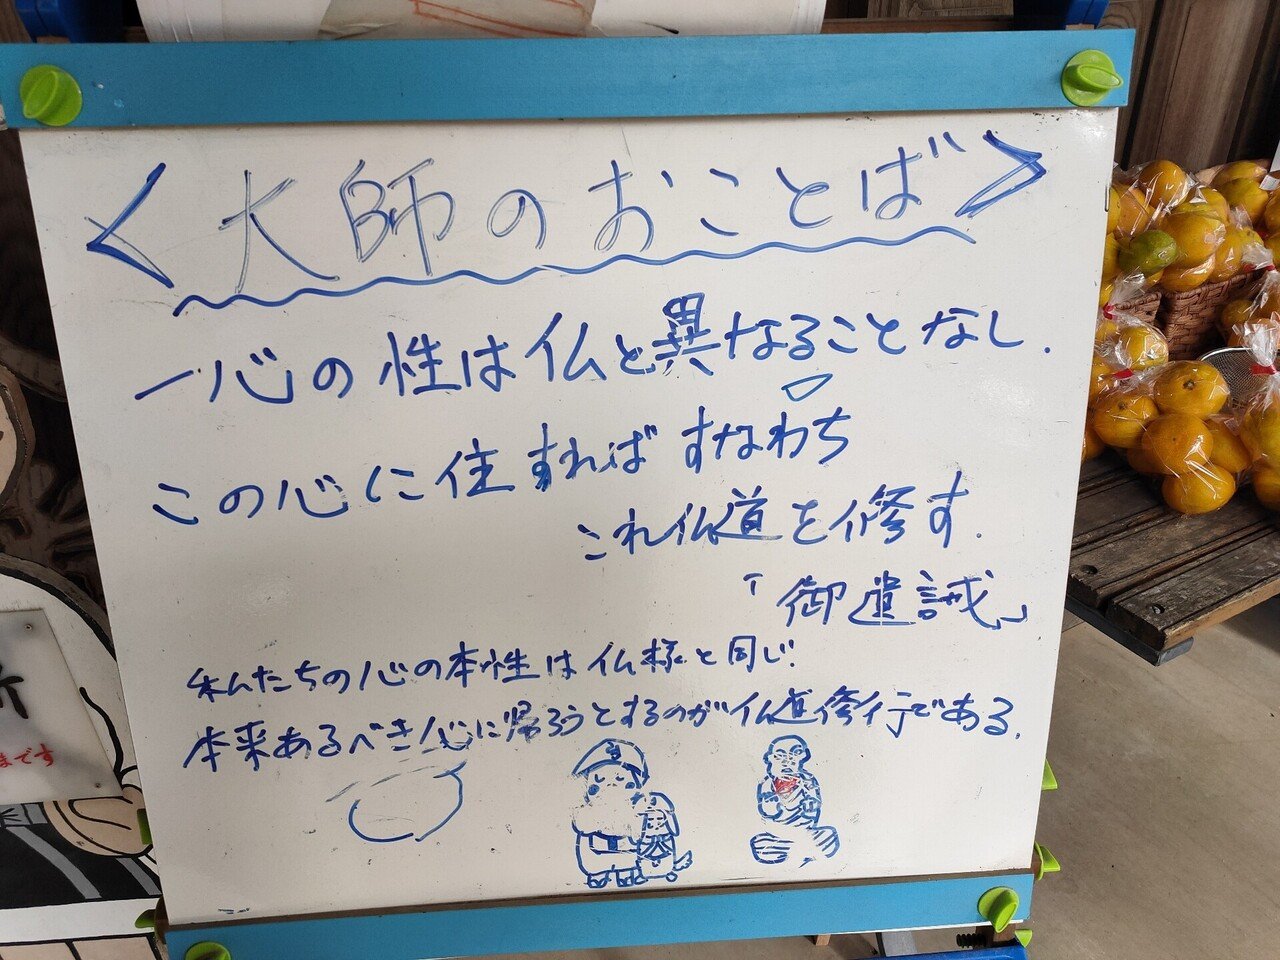 <大師のおことば>
一心の性は仏と異なることなし.
この心に住すればすなわち
これ仏道を修す.
「御遺誡」
私たちの心の本性は仏様と同じ.
本来あるべき心に帰ろうとするのが仏道修行である.
まです